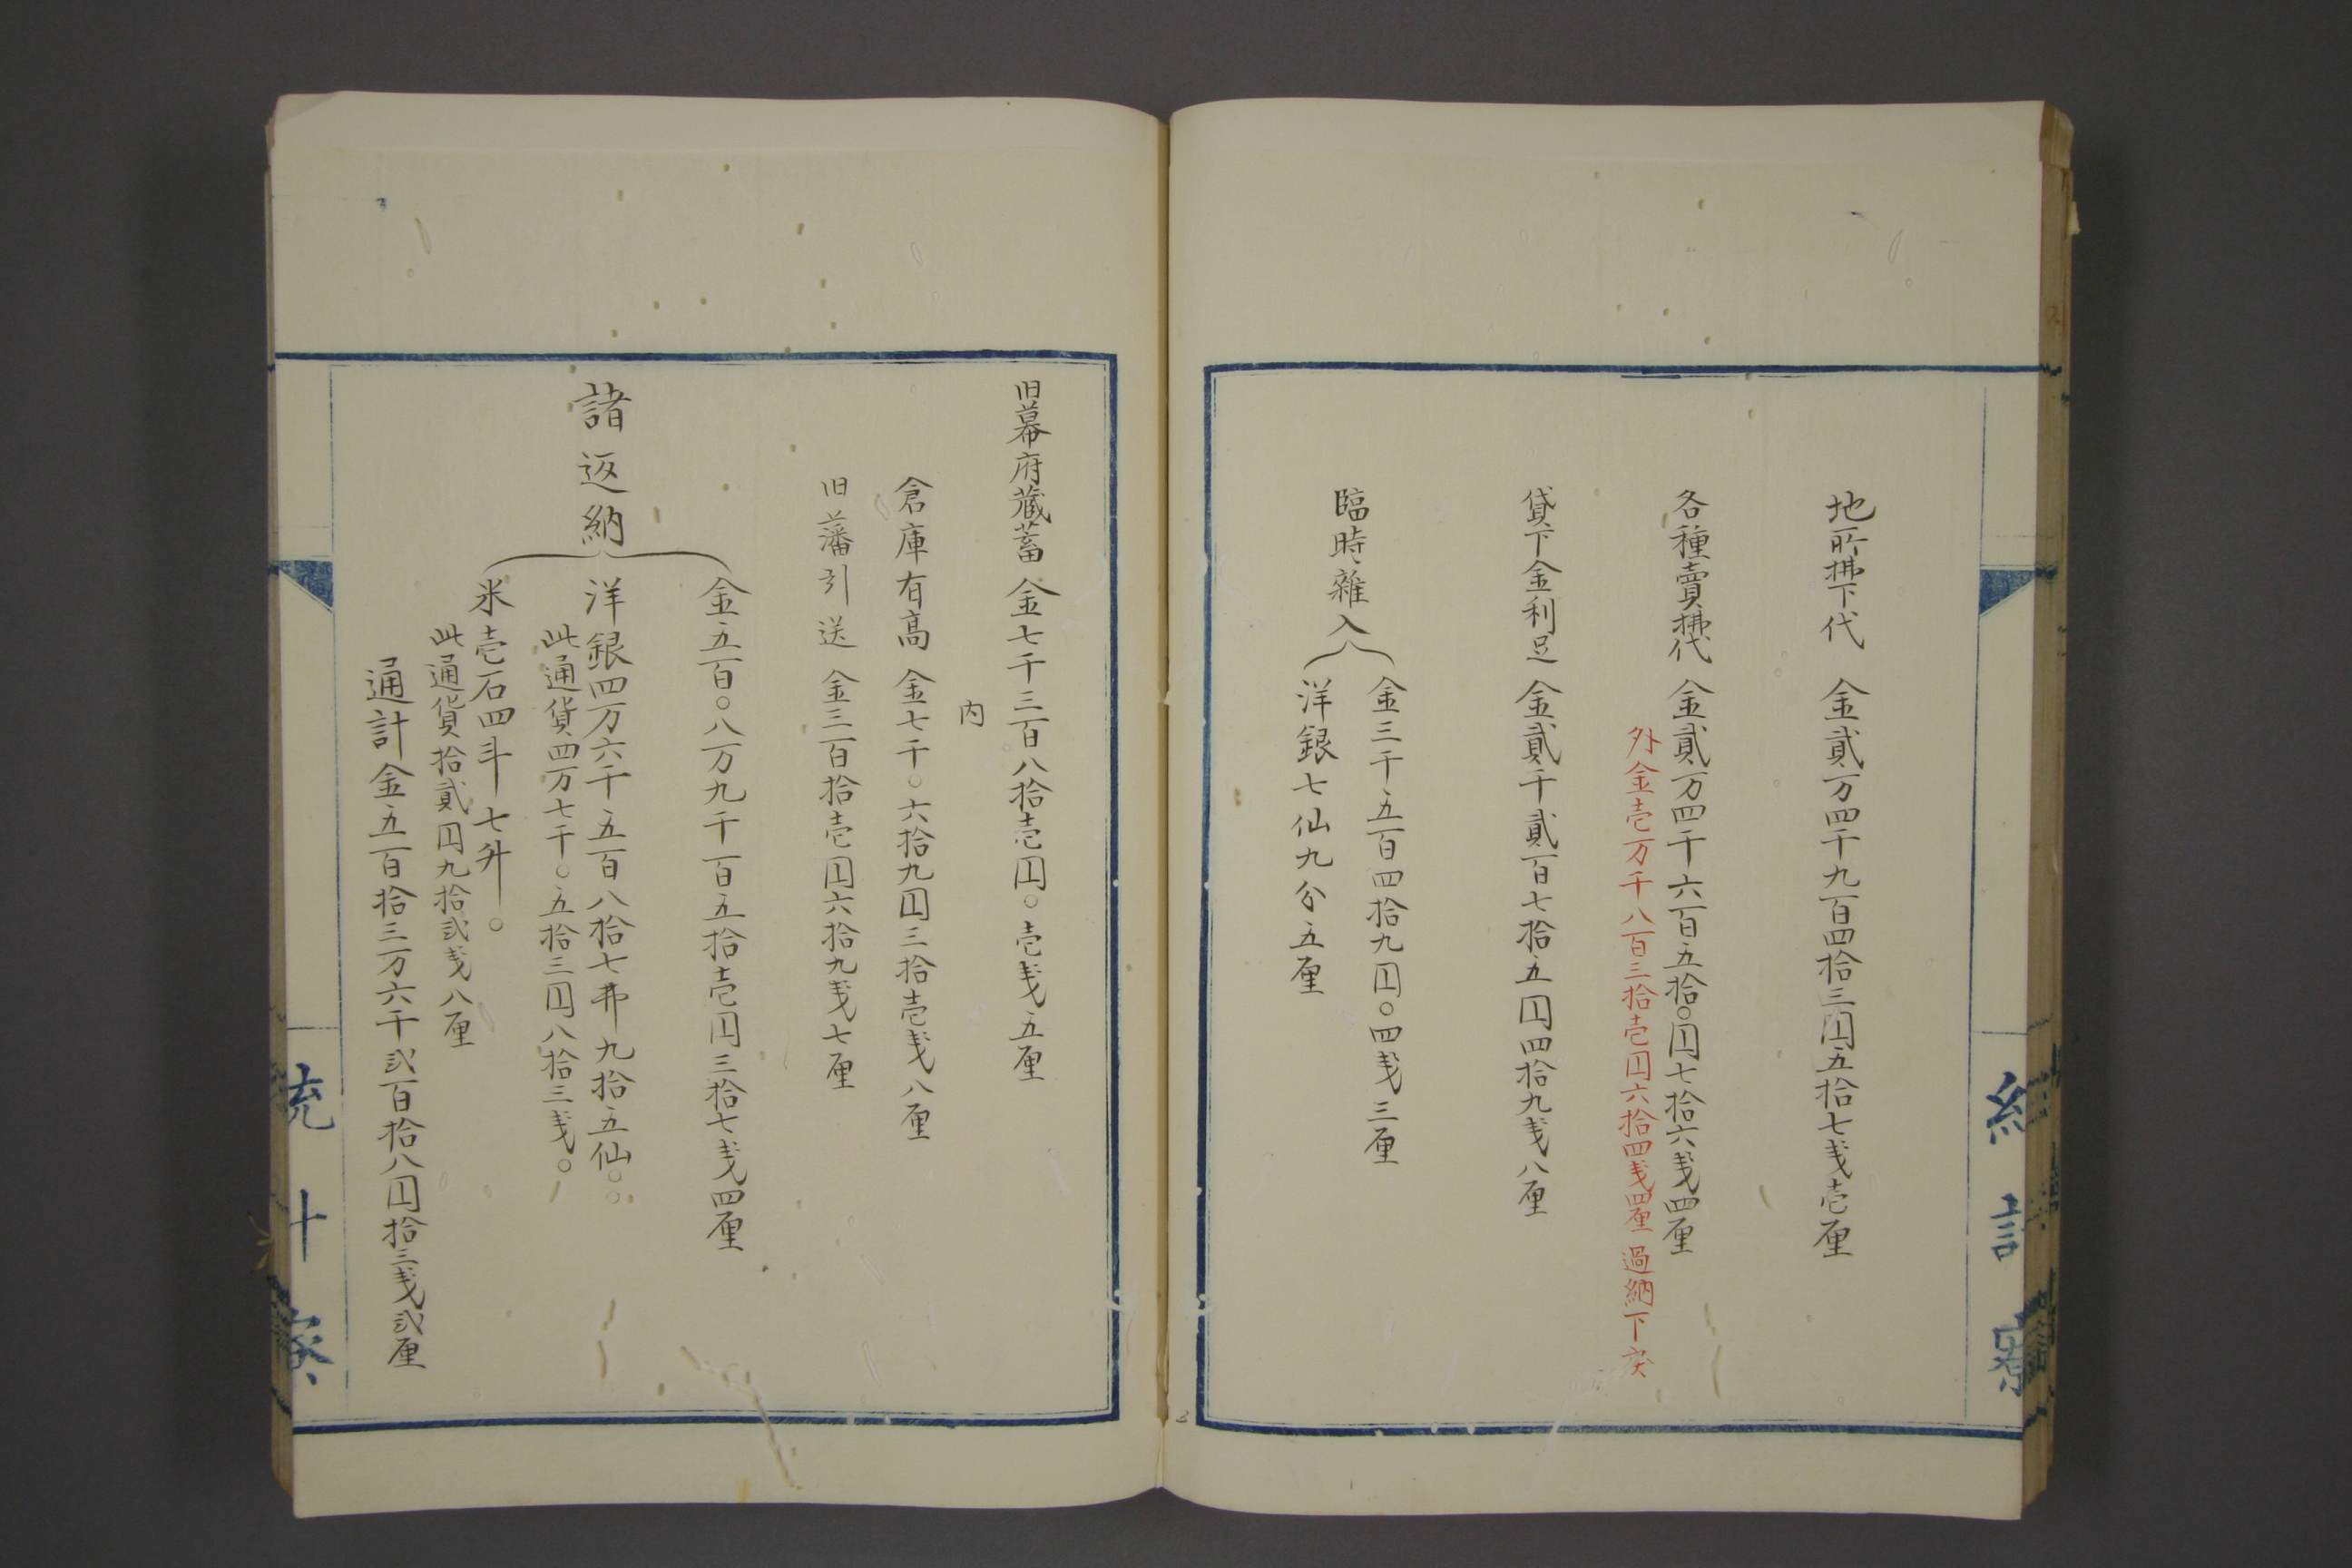 地所拂下代 金貳万四千九百四拾三円五拾七戔壱厘
各種賣拂代 金貳万四千六百五拾○円七拾六戔四厘
外金壱万千八百三拾壱円六拾四戔四厘 過納下戻
貸下金利足 金貳千貳百七拾五円四拾九戔八厘
臨時雜入
金三千五百四拾九円○四戔三厘
洋銀七仙九分五厘
旧幕府藏蓄 金七千三百八拾壱円○壱戔五厘
内
倉庫有高 金七千○六拾九円三拾壱戔八厘
旧藩引送 金三百拾壱円六拾九戔七厘
諸返納
金五百○八万九千百五拾壱円三拾七戔四厘
洋銀四万六千五百八拾七弗九拾五仙○
此通貨四万七千○五拾三円八拾三戔○
米壱石四斗七升○
此通貨拾貳円九拾弐戔八厘
通計金五百拾三万六千弐百拾八円拾三戔弐厘
統計寮